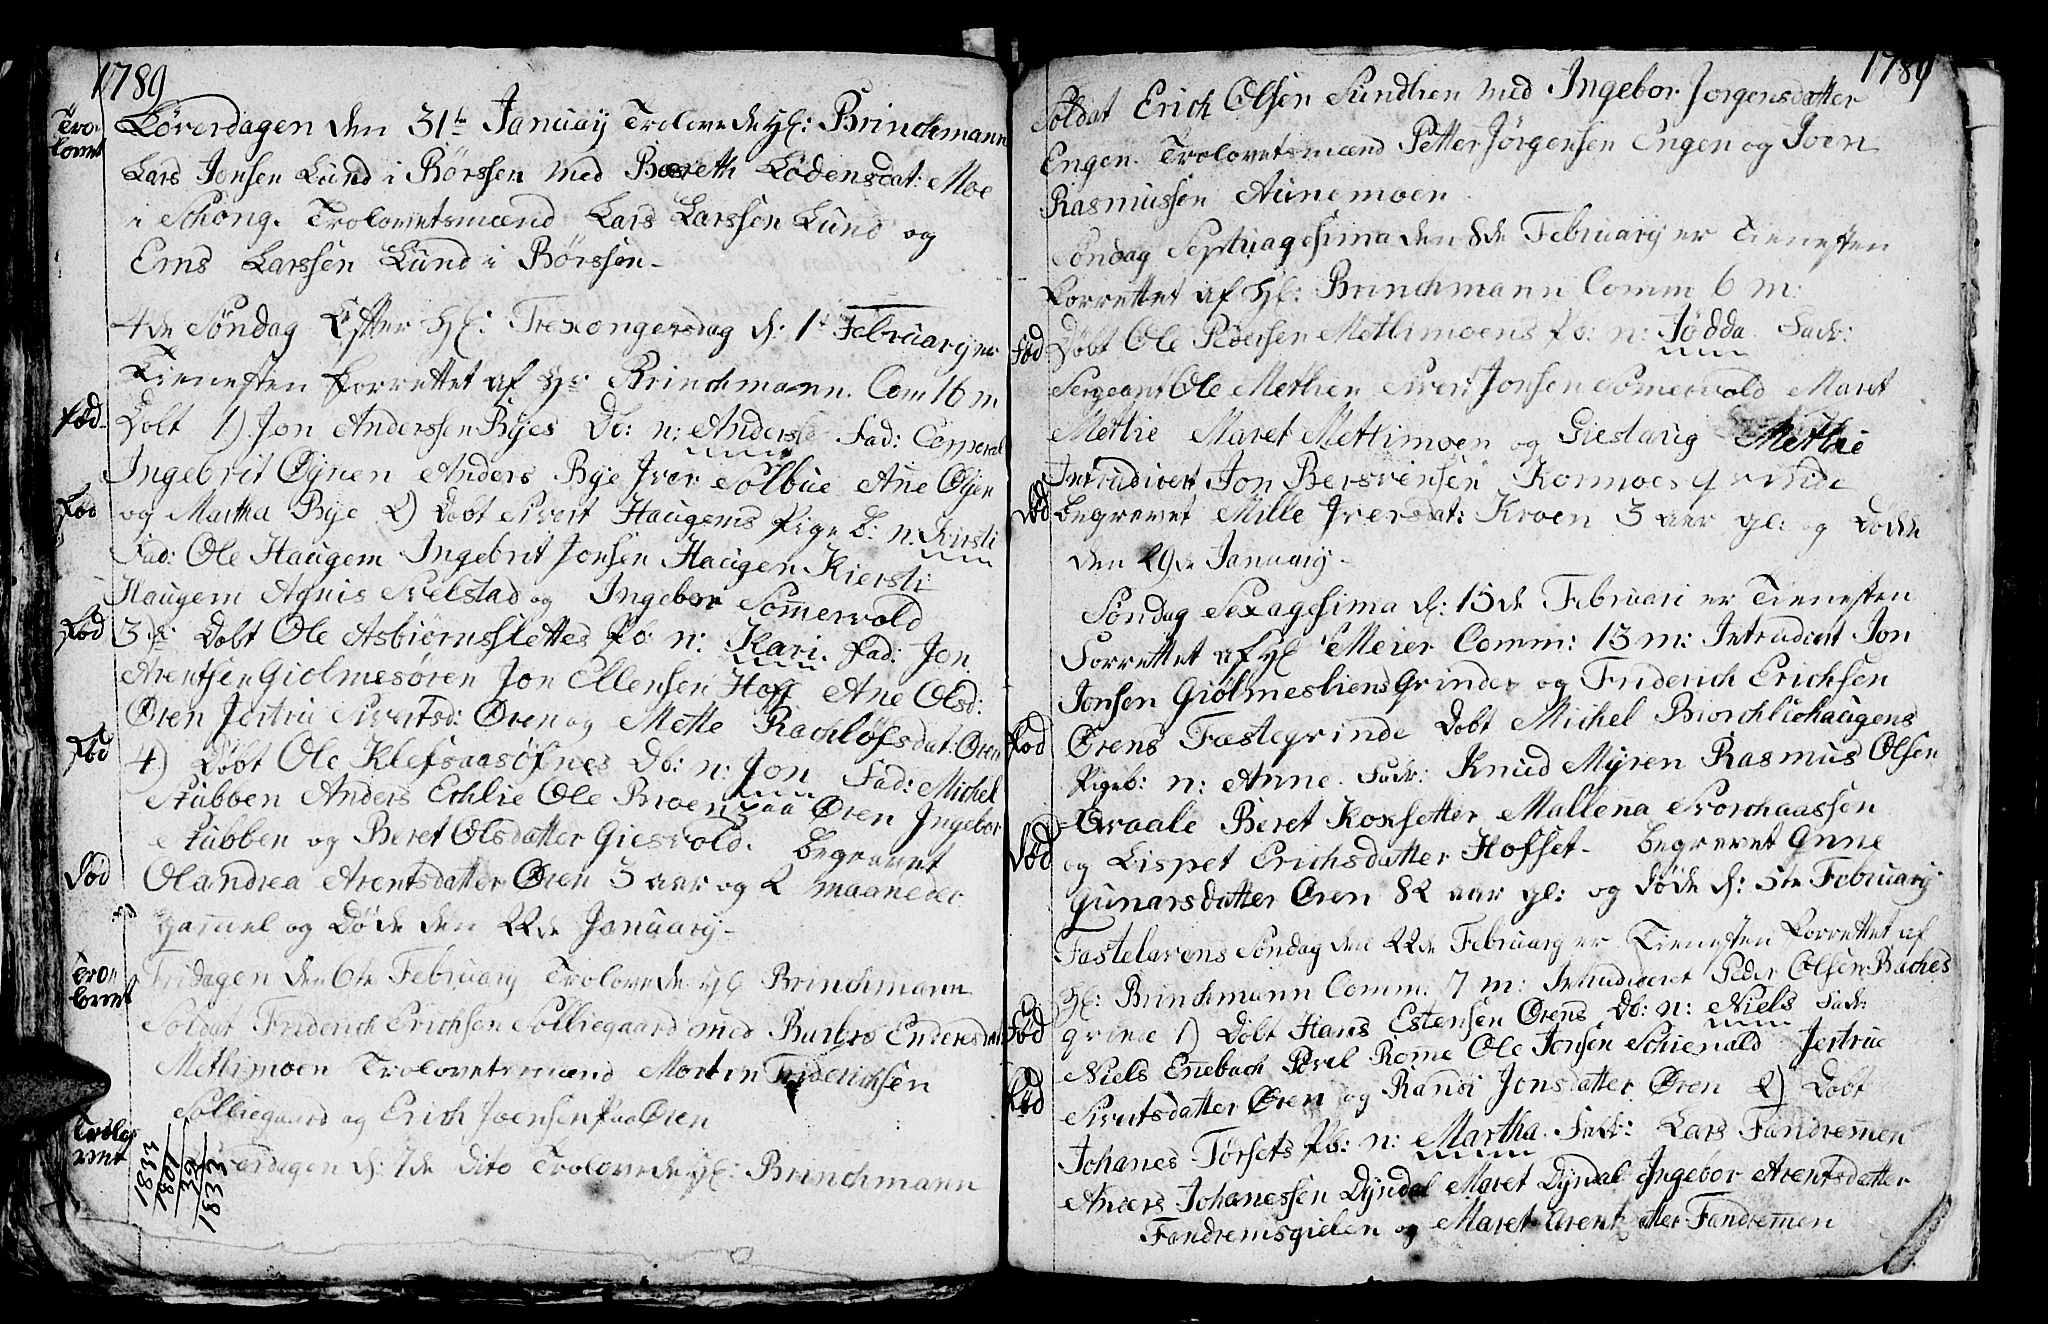 1789
Tro-
lovet
Løverdagen den 31te January Trolovede Hr: Brinchmann
Lars Jonsen Lund i Børssen med Bereth Lodensdat: Moe
i Schong. Trolovetsmænd Lars Larssen Lund og
Erns Larssen Lund i Børssen-
4de Søndag Efter Hl: Trekongersdag d: 1te February er
Tienesten forrettet af Hr Brinchmann. Com 16 m
Fød
Dobt 1) Jon Anderssen Byes Db: n: Anders Fad: Copperal
Ingebrit Øynen Anders Bye Iver Solbue Ane Øyen
Fød
og Martha Bye 2) Dobt Sivert Haugems Pige b: n: Kirsti
Fad: Ole Haugem Ingebrit Jonsen Haugen Kiersti
Haugem Agnis Selstad og Ingebor Somervold
Fød
3) Dobt Ole Asbiørnslettes Pb: n: Kari. Fad: Jon
Arentsen Giolmesøren Jon Ellensen Hoff Ane Olsd:
Øren Jertru Sivertsd: Øren og Mette Rachløfsdat: Øren
Fød
4) Døbt Ole Klefsaasøfnes Db: n: Jon Fad: Michel
Stubben Anders Echlie Ole Broen paa Øren Ingebor
Stubben og Beret Olsdatter Giesvold. Begrevet
Død
Olandrea Arentsdatter Øren 3 aar og 2 maaneder
gammel og Døde den 22de January-
Tro-
lovet
Fridagen den 6te February Trolovede Hr Brinchmann
Soldat Friderich Erichsen Solliegaard med Barbro Endresdat
Methimoen Trolovetsmænd Morten Friderichsen
Solliegaard og Erich Joensen paa Øren
Trolo-
vet
Løverdagen d: 7de dito Trolovede Hr: Brinchmann
1789
Soldat Erich Olsen Sundlien med Ingebor Jorgensdatter
Engen. Trolovetsmænd Petter Jørgensen Engen og Joen
Rasmussen Aunemoen
Søndag Septuagesima den 8de February er Tienesten
forrettet af Hr: Brinchmann Comm 6 m:
Fød
Døbt Ole Pedersen Methimoens Pb: n: Jødda Fadr:
Sergeant Ole Methien Sivert Jonsen Somervold Maret
Methie Maret Methimoen og Gieslaug Methie
Intrudicert Jon Bersvensen Konmoes qvinde
Død
begrevet Mille Iversdat: Kroen 3 aar gl: og Dødde
den 29de January-
Søndag Sexagesima d: 15de Februari er Tienesten
Forrettet af Hr Meier Comm: 13 m: Intrudicert Jon
Jonsen Giølmesliens Qvinde og Friderich Erichsen
Fød
Ørens Fæsteqvinde Dobt Michel Biorchliehaugens
Pigeb: n: Anne. Fadr: Knud Myren Rasmus Olsen
Qvaale Beret Koxsetter Mallena Storchaassen
Død
og Lispet Erichsdatter Hofset- begrevet Anne
Gunarsdatter Øren 82 aar gl: og døde d: 5te February
Fastelavens Søndag den 22de February er Tienesten forrettet af
Hr: Brinchmann Comm: 7 m: Intrudiceret Peder Olsen Baches
Fød
qvinde 1) Døbt Hans Estensen Ørens Db: n: Niels Fadr:
Niels Enebach Povel Romme Ole Jonsen Schienald Jertrue
Fød
Sivertsdatter Øren og Randi Jonsdatter Øren 2) Dobt
Johanes Tørsets Pb: n: Martha. Fadr: Lars Fandremen
Anders Johanessen Dyndal Maret Dyndal Ingebor Arentsdatter
Fandremsgielen og Maret Arentzdatter Fandremmen